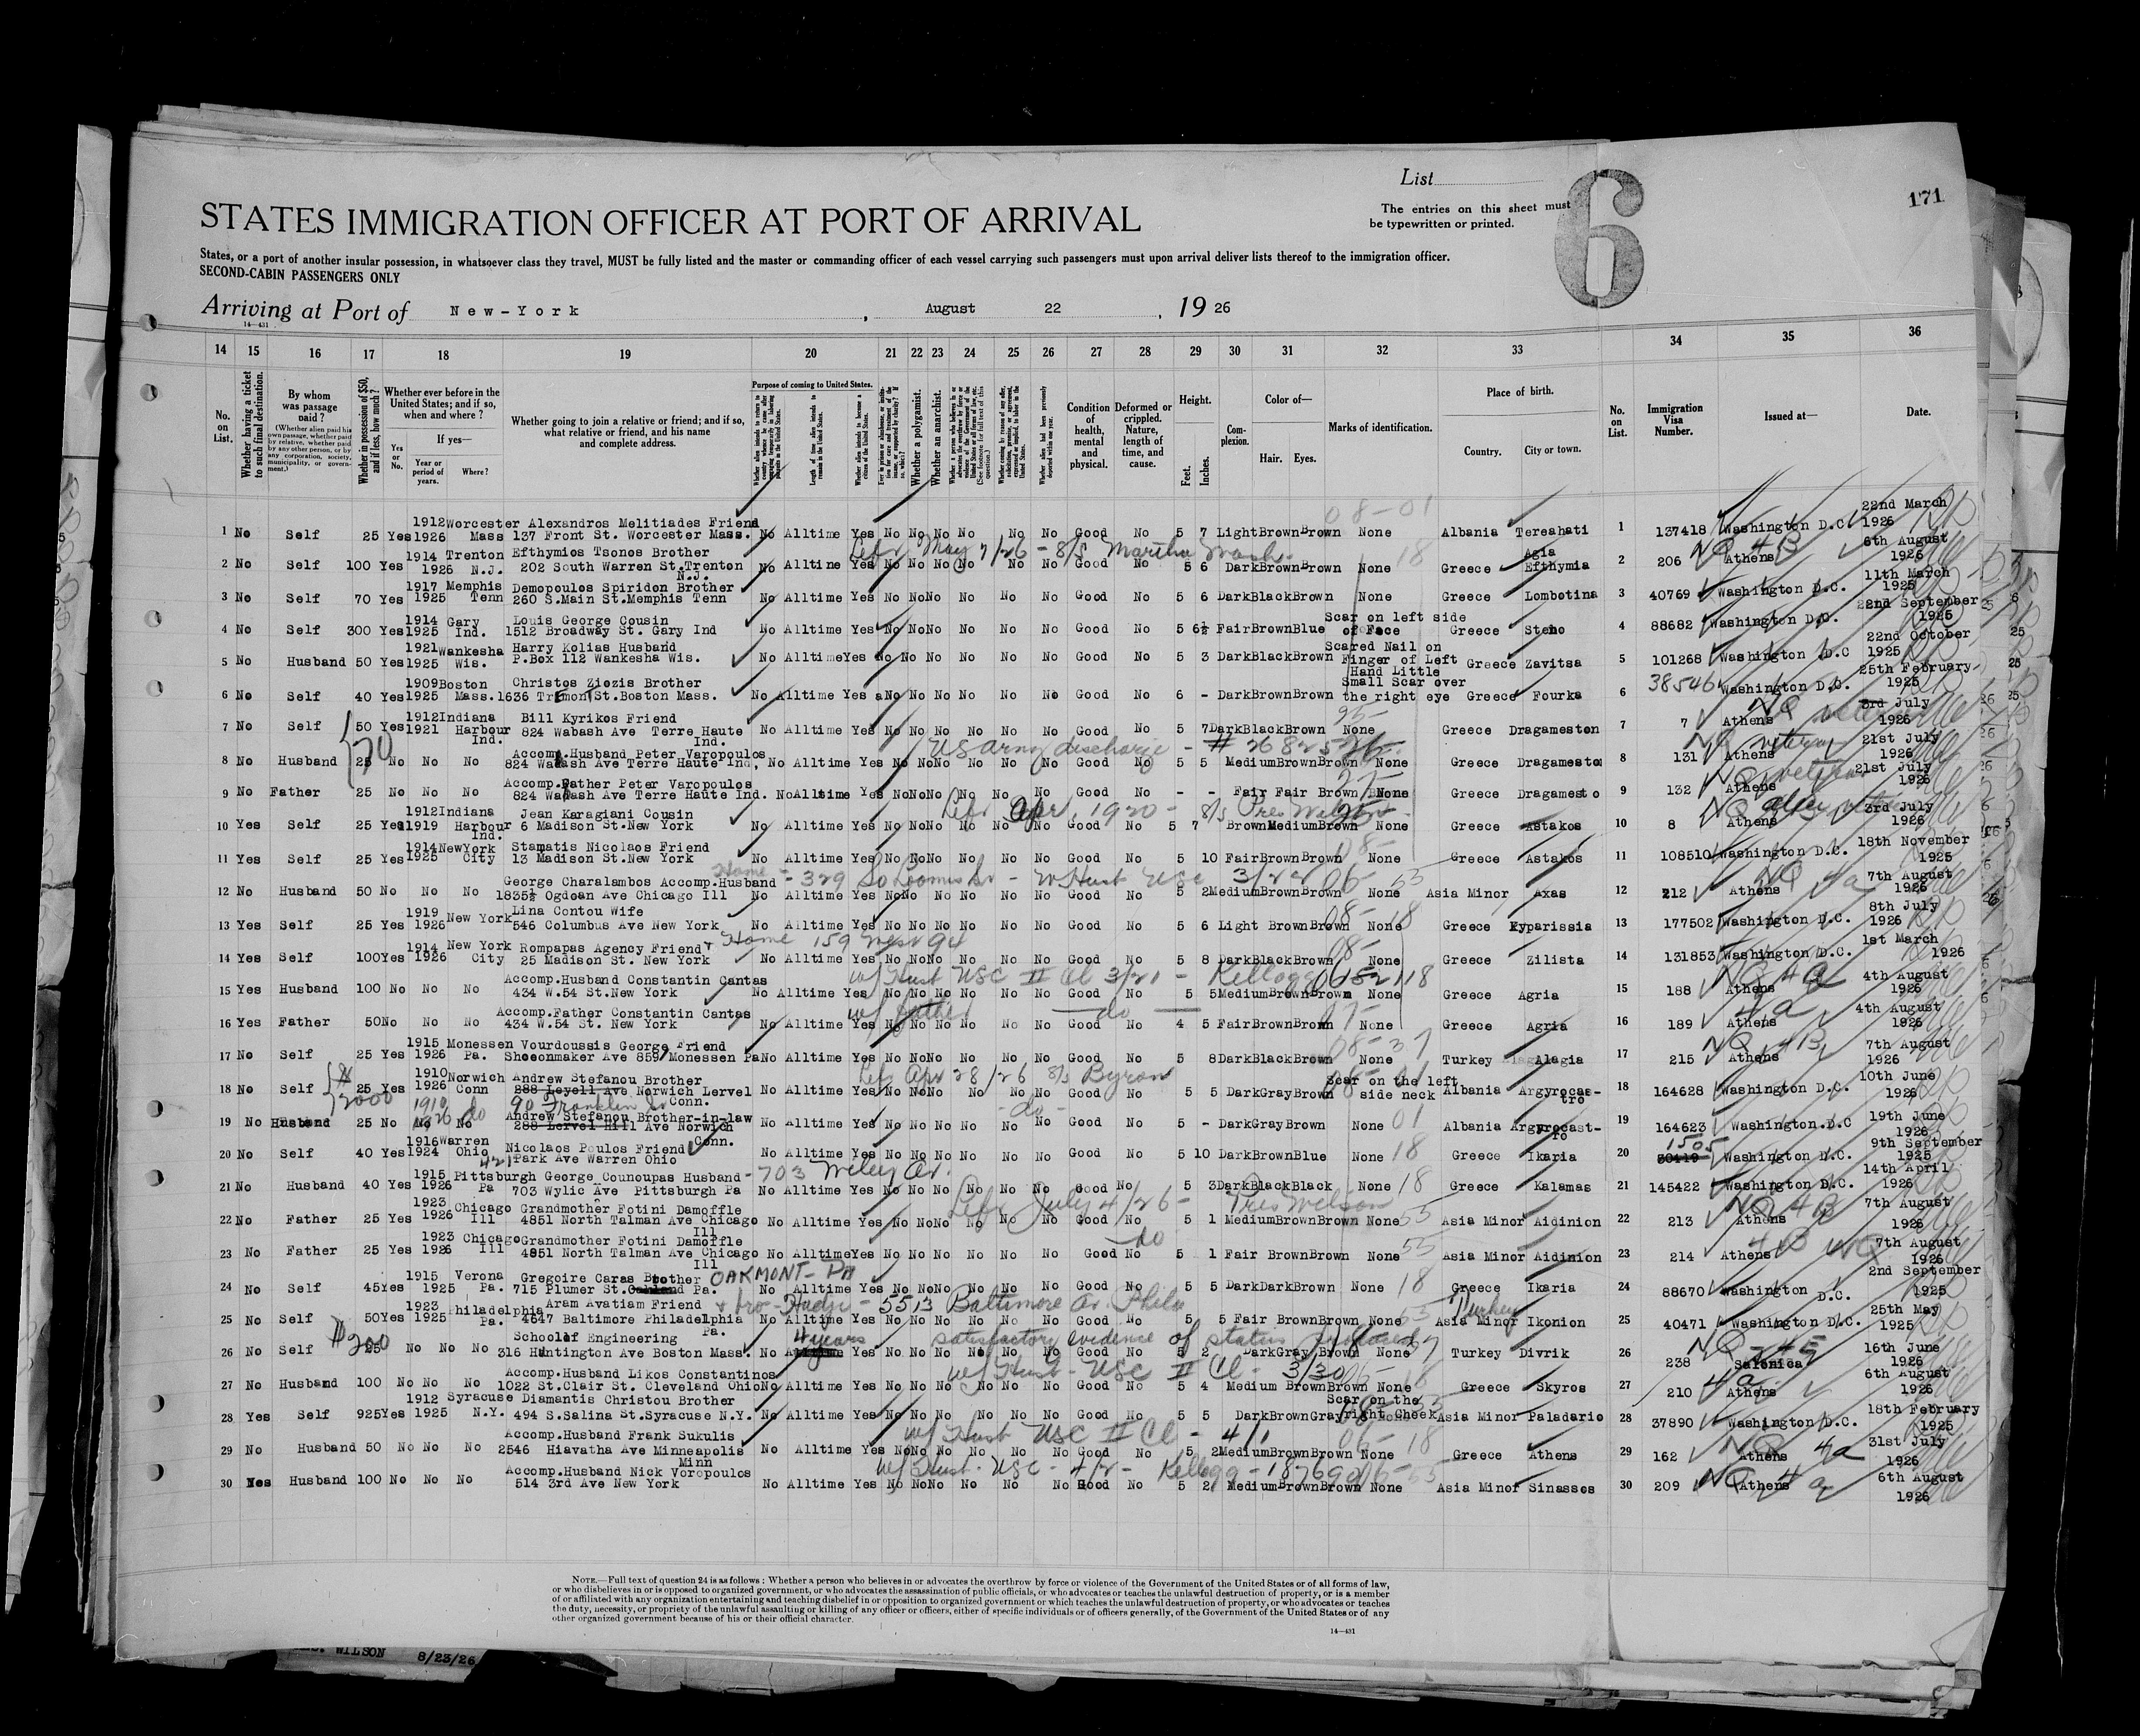 List
6
171
The entries on this sheet must
be typewritten or printed.
STATES IMMIGRATION OFFICER AT PORT OF ARRIVAL
States, or a port of another insular possession, in whatsoever class they travel, MUST be fully listed and the master or commanding officer of each vessel carrying such passengers must upon arrival deliver lists thereof to the immigration officer.
SECOND-CABIN PASSENGERS ONLY
Arriving at Port of New-York, August 22, 19 26
14—431
14 15 16 17 18 19 20 21 22 23 24 25 26 27 28 29 30 31 32 33 34 35 36
No. on List.
Whether having a ticket to such final destination.
By whom was passage paid?
(Whether alien paid his own passage, whether paid by relative, whether paid by any other person, or by any corporation, society, municipality, or government.)
Whether in possession of $50, and if less, how much?
Whether ever before in the United States; and if so, when and where?
Yes or No.
If yes—
Year or period of years.
Where?
Whether going to join a relative or friend; and if so, what relative or friend, and his name and complete address.
Purpose of coming to United States.
Whether a polygamist.
Whether an anarchist.
Condition of health, mental and physical.
Deformed or crippled. Nature, length of time, and cause.
Height.
Feet.
Inches.
Complexion.
Color of—
Hair.
Eyes.
Marks of identification.
Place of birth.
Country.
City or town.
No. on List.
Immigration Visa Number.
Issued at—
Date.
1 No Self 25 Yes 1912 1926 Worcester Mass Alexandros Melitiades Friend 137 Front St. Worcester Mass. No Alltime Yes No No No No No No Good No 5 7 Light Brown Brown None Albania Tereahati 1 137418 Washington D.C. 22nd March 1926
Left May 7/26 - S/S Martha Wash.
2 No Self 100 Yes 1914 1926 Trenton N.J. Efthymios Tsonos Brother 202 South Warren St. Trenton N.J. No Alltime Yes No No No No No No Good No 5 6 Dark Brown Brown None Greece Agia Efthymia 2 206 Athens 6th August 1926
3 No Self 70 Yes 1917 1925 Memphis Tenn Demopoulos Spiridon Brother 260 S.Main St.Memphis Tenn No Alltime Yes No No No No No No Good No 5 6 Dark Black Brown None Greece Lombotina 3 40769 Washington D.C. 11th March 1925
4 No Self 300 Yes 1914 1925 Gary Ind. Louis George Cousin 1512 Broadway St. Gary Ind No Alltime Yes No No No No No No Good No 5 6½ Fair Brown Blue Scar on left side of Face Greece Steno 4 88682 Washington D.C. 22nd September 1925
5 No Husband 50 Yes 1921 1925 Wankesha Wis. Harry Kolias Husband P.Box 112 Wankesha Wis. No Alltime Yes No No No No No No Good No 5 3 Dark Black Brown Scared Nail on Finger of Left Hand Little Greece Zavitsa 5 101268 Washington D.C 22nd October 1925
6 No Self 40 Yes 1909 1925 Boston Mass. Christos Ziozis Brother 1636 Tremont St.Boston Mass. No Alltime Yes No No No No No No Good No 6 - Dark Brown Brown Small Scar over the right eye Greece Fourka 6 38546 Washington D.C. 25th February 1925
7 No Self 50 Yes 1912 1921 Indiana Harbour Ind. Bill Kyrikos Friend 824 Wabash Ave Terre Haute Ind. No Alltime Yes No No No No No No Good No 5 7 Dark Black Brown None Greece Dragameston 7 7 Athens 3rd July 1926
70
US army discharge - #
8 No Husband 25 No No No Accomp.Husband Peter Varopoulos 824 Wabash Ave Terre Haute Ind. No Alltime Yes No No No No No No Good No 5 5 Medium Brown Brown None Greece Dragameston 8 131 Athens 21st July 1926
9 No Father 25 No No No Accomp.Father Peter Varopoulos 824 Wabash Ave Terre Haute Ind. No Alltime Yes No No No No No No Good No - - Fair Fair Brown None Greece Dragamesto 9 132 Athens 21st July 1926
Left Apr. 1920 - S/S Pres Wilson
10 Yes Self 25 Yes 1912 1919 Indiana Harbour Ind. Jean Karagiani Cousin 6 Madison St.New York No Alltime Yes No No No No No No Good No 5 7 Brown Medium Brown None Greece Astakos 10 8 Athens 3rd July 1926
11 Yes Self 25 Yes 1914 1925 New York City Stamatis Nicolaos Friend 13 Madison St.New York No Alltime Yes No No No No No No Good No 5 10 Fair Brown Brown None Greece Astakos 11 108510 Washington D.C. 18th November 1925
Home - 329 So Loomis St - W/Husb USC 3/22
12 No Husband 50 No No No George Charalambos Accomp.Husband 1835½ Ogdoan Ave Chicago Ill No Alltime Yes No No No No No No Good No 5 2 Medium Brown Brown None Asia Minor Axas 12 212 Athens 7th August 1926
13 Yes Self 25 Yes 1919 1926 New York Lina Contou Wife 546 Columbus Ave New York No Alltime Yes No No No No No No Good No 5 6 Light Brown Brown None Greece Kyparissia 13 177502 Washington D.C. 8th July 1926
Home 159 West 94
14 Yes Self 100 Yes 1914 1926 New York City Rompapas Agency Friend 25 Madison St. New York No Alltime Yes No No No No No No Good No 5 8 Dark Black Brown None Greece Zilista 14 131853 Washington D.C. 1st March 1926
w/ Husb USC II Cl 3/21 - Kellogg
15 Yes Husband 100 No No No Accomp.Husband Constantin Cantas 434 W.54 St.New York No Alltime Yes No No No No No No Good No 5 5 Medium Brown Brown None Greece Agria 15 188 Athens 4th August 1926
w/ father — do —
16 Yes Father 50 No No No Accomp.Father Constantin Cantas 434 W.54 St. New York No Alltime Yes No No No No No No Good No 4 5 Fair Brown Brown None Greece Agria 16 189 Athens 4th August 1926
17 No Self 25 Yes 1915 1926 Monessen Pa. Vourdoussis George Friend Shoeonmaker Ave 859 Monessen Pa No Alltime Yes No No No No No No Good No 5 8 Dark Black Brown None Turkey Alagia 17 215 Athens 7th August 1926
Left Apr 28/26 S/S Byron
18 No Self 25 Yes 1910 1926 Norwich Conn Andrew Stefanou Brother 288 Leyell Ave Norwich Lervel Conn. No Alltime Yes No No No No No No Good No 5 5 Dark Gray Brown Scar on the left side neck Albania Argyrocastro 18 164628 Washington D.C. 10th June 1926
$2000
90 Franklin St
- do -
19 No Husband 25 No No No 1910 1926 do Andrew Stefanou Brother-in-law 288 Lervel Hill Ave Norwich Conn. No Alltime Yes No No No No No No Good No 5 - Dark Gray Brown None Albania Argyrocastro 19 164623 Washington D.C 19th June 1926
20 No Self 40 Yes 1916 1924 Warren Ohio Nicolaos Poulos Friend 421 Park Ave Warren Ohio No Alltime Yes No No No No No No Good No 5 10 Dark Brown Blue None Greece Ikaria 20 1505 Washington D.C. 9th September 1925
703 Wiley Av.
21 No Husband 40 Yes 1915 1926 Pittsburgh Pa George Counoupas Husband 703 Wylic Ave Pittsburgh Pa No Alltime Yes No No No No No No Good No 5 3 Dark Black Black None Greece Kalamas 21 145422 Washington D.C. 14th April 1926
Left July 4/26 - Pres Wilson
22 No Father 25 Yes 1923 1926 Chicago Ill Grandmother Fotini Damoffle 4851 North Talman Ave Chicago Ill No Alltime Yes No No No No No No Good No 5 1 Medium Brown Brown None Asia Minor Aidinion 22 213 Athens 7th August 1926
do
23 No Father 25 Yes 1923 1926 Chicago Ill Grandmother Fotini Damoffle 4851 North Talman Ave Chicago Ill No Alltime Yes No No No No No No Good No 5 1 Fair Brown Brown None Asia Minor Aidinion 23 214 Athens 7th August 1926
24 No Self 45 Yes 1915 1925 Verona Pa. Gregoire Caras Brother 715 Plumer St. Pa. OAKMONT - PA No Alltime Yes No No No No No No Good No 5 5 Dark Dark Brown None Greece Ikaria 24 88670 Washington D.C. 2nd September 1925
5513 Baltimore Av. Phila
25 No Self 50 Yes 1923 1925 Philadelphia Pa. Aram Avatiam Friend 4647 Baltimore Philadelphia Pa. No Alltime Yes No No No No No No Good No 5 5 Fair Brown Brown None Turkey Asia Minor Ikonion 25 40471 Washington D.C. 25th May 1925
$200
4 years satisfactory evidence of status
26 No Self No No No School of Engineering 316 Huntington Ave Boston Mass. No Alltime Yes No No No No No No Good No 5 2 Dark Gray Brown None Turkey Divrik 26 238 Salonica 16th June 1926
w/ Husb - USC II Cl - 3/30
27 No Husband 100 No No No Accomp.Husband Likos Constantinos 1022 St.Clair St. Cleveland Ohio No Alltime Yes No No No No No No Good No 5 4 Medium Brown Brown None Greece Skyros 27 210 Athens 6th August 1926
28 Yes Self 925 Yes 1912 1925 Syracuse N.Y. Diamantis Christou Brother 494 S.Salina St.Syracuse N.Y. No Alltime Yes No No No No No No Good No 5 5 Dark Brown Gray Scar on the right Cheek Asia Minor Paladario 28 37890 Washington D.C. 18th February 1925
w/ Husb USC II Cl - 4/1
29 No Husband 50 No No No Accomp.Husband Frank Sukulis 2546 Hiavatha Ave Minneapolis Minn No Alltime Yes No No No No No No Good No 5 2 Medium Brown Brown None Greece Athens 29 162 Athens 31st July 1926
w/ Husb. USC - 4/2 - Kellogg
30 Yes Husband 100 No No No Accomp.Husband Nick Voropoulos 514 3rd Ave New York No Alltime Yes No No No No No No Good No 5 2 Medium Brown Brown None Asia Minor Sinassos 30 209 Athens 6th August 1926
NOTE.—Full text of question 24 is as follows: Whether a person who believes in or advocates the overthrow by force or violence of the Government of the United States or of all forms of law,
or who disbelieves in or is opposed to organized government, or who advocates the assassination of public officials, or who advocates or teaches the unlawful destruction of property, or is a member
of or affiliated with any organization entertaining and teaching disbelief in or opposition to organized government or which teaches the unlawful destruction of property, or who advocates or teaches
the duty, necessity, or propriety of the unlawful assaulting or killing of any officer or officers, either of specific individuals or of officers generally, of the Government of the United States or of any
other organized government because of his or their official character.
14—431
WILSON 8/23/26